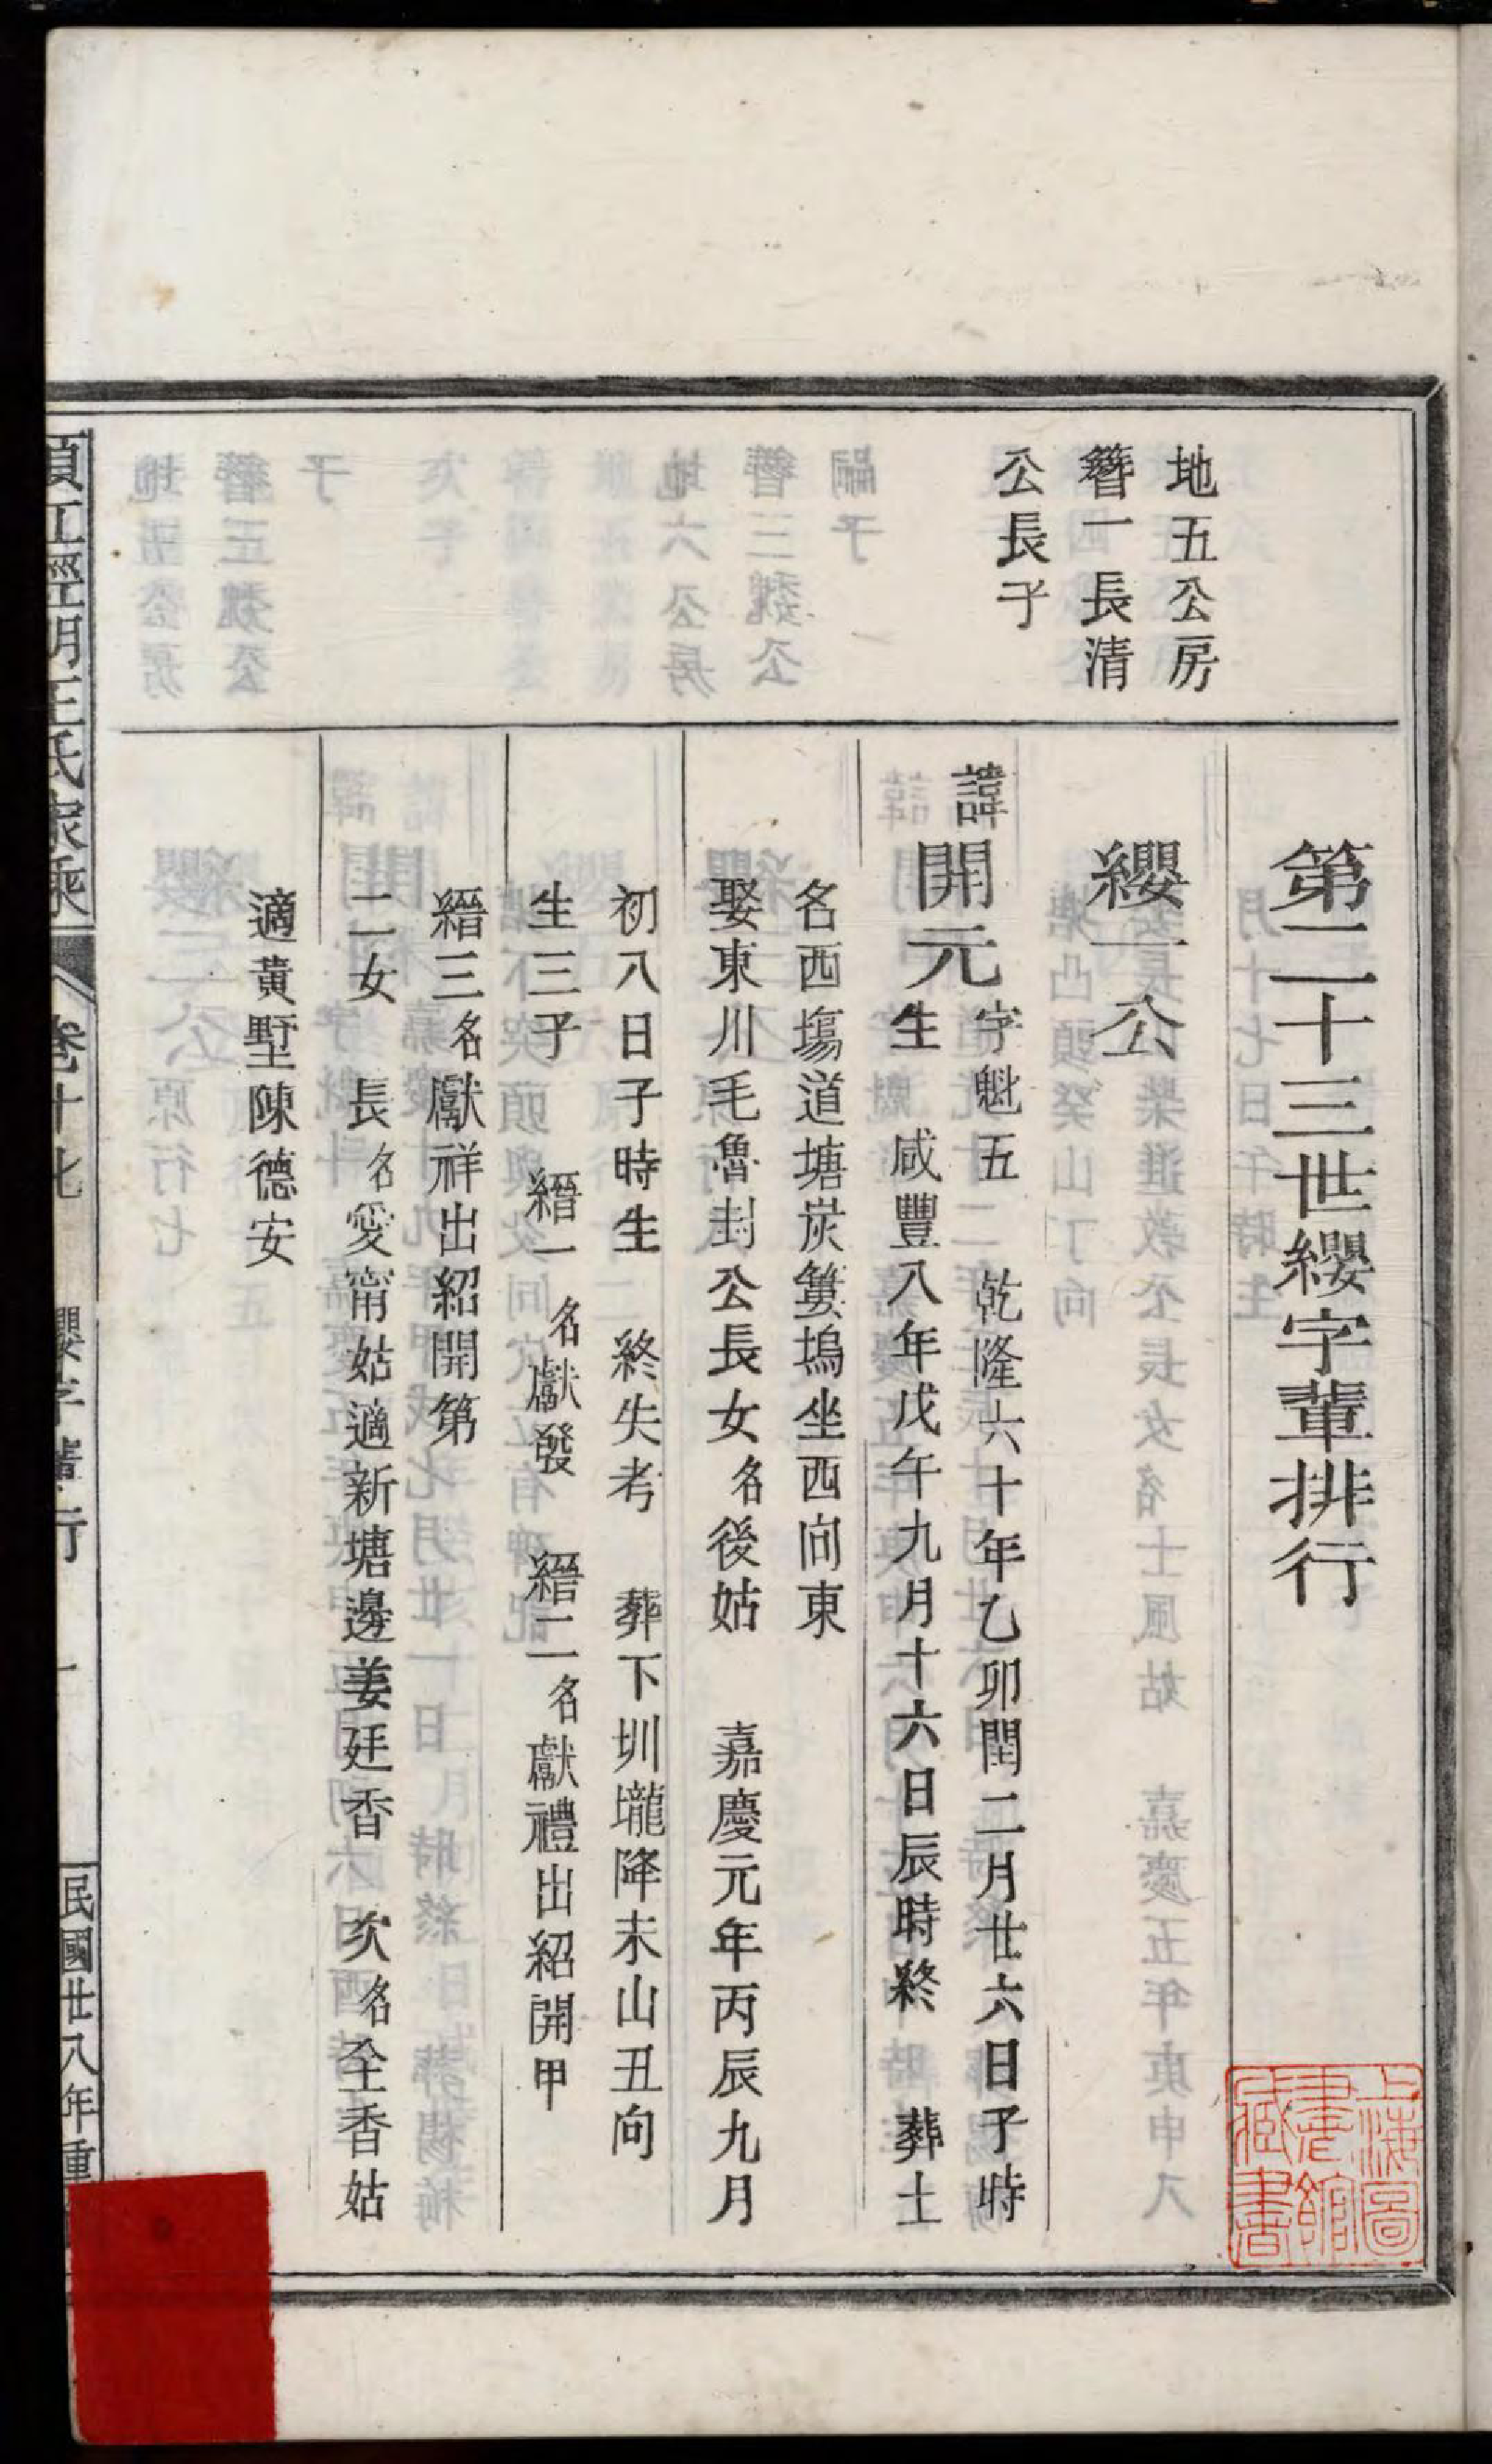 第二十三世纓字輩排行
地五公房
簪一長清
公長子
纓一公
諱開元
字魁五 乾隆六十年乙卯閏二月廿六日子時
生 咸豐八年戊午九月十六日辰時終 葬土
名西塢道塘炭簍塢坐西向東
娶東川毛魯封公長女名後姑 嘉慶元年丙辰九月
初八日子時生 終失考 葬下圳壠降未山丑向
生三子 縉一名獻發 縉二名獻禮出紹開甲
縉三名獻祥出紹開第
二女 長名愛甯姑適新塘邊姜廷香 次名全香姑
適黃墅陳德安
須江壂明王氏家乘 卷十七 纓字輩行 一 民國廿八年重
上海圖書館藏書